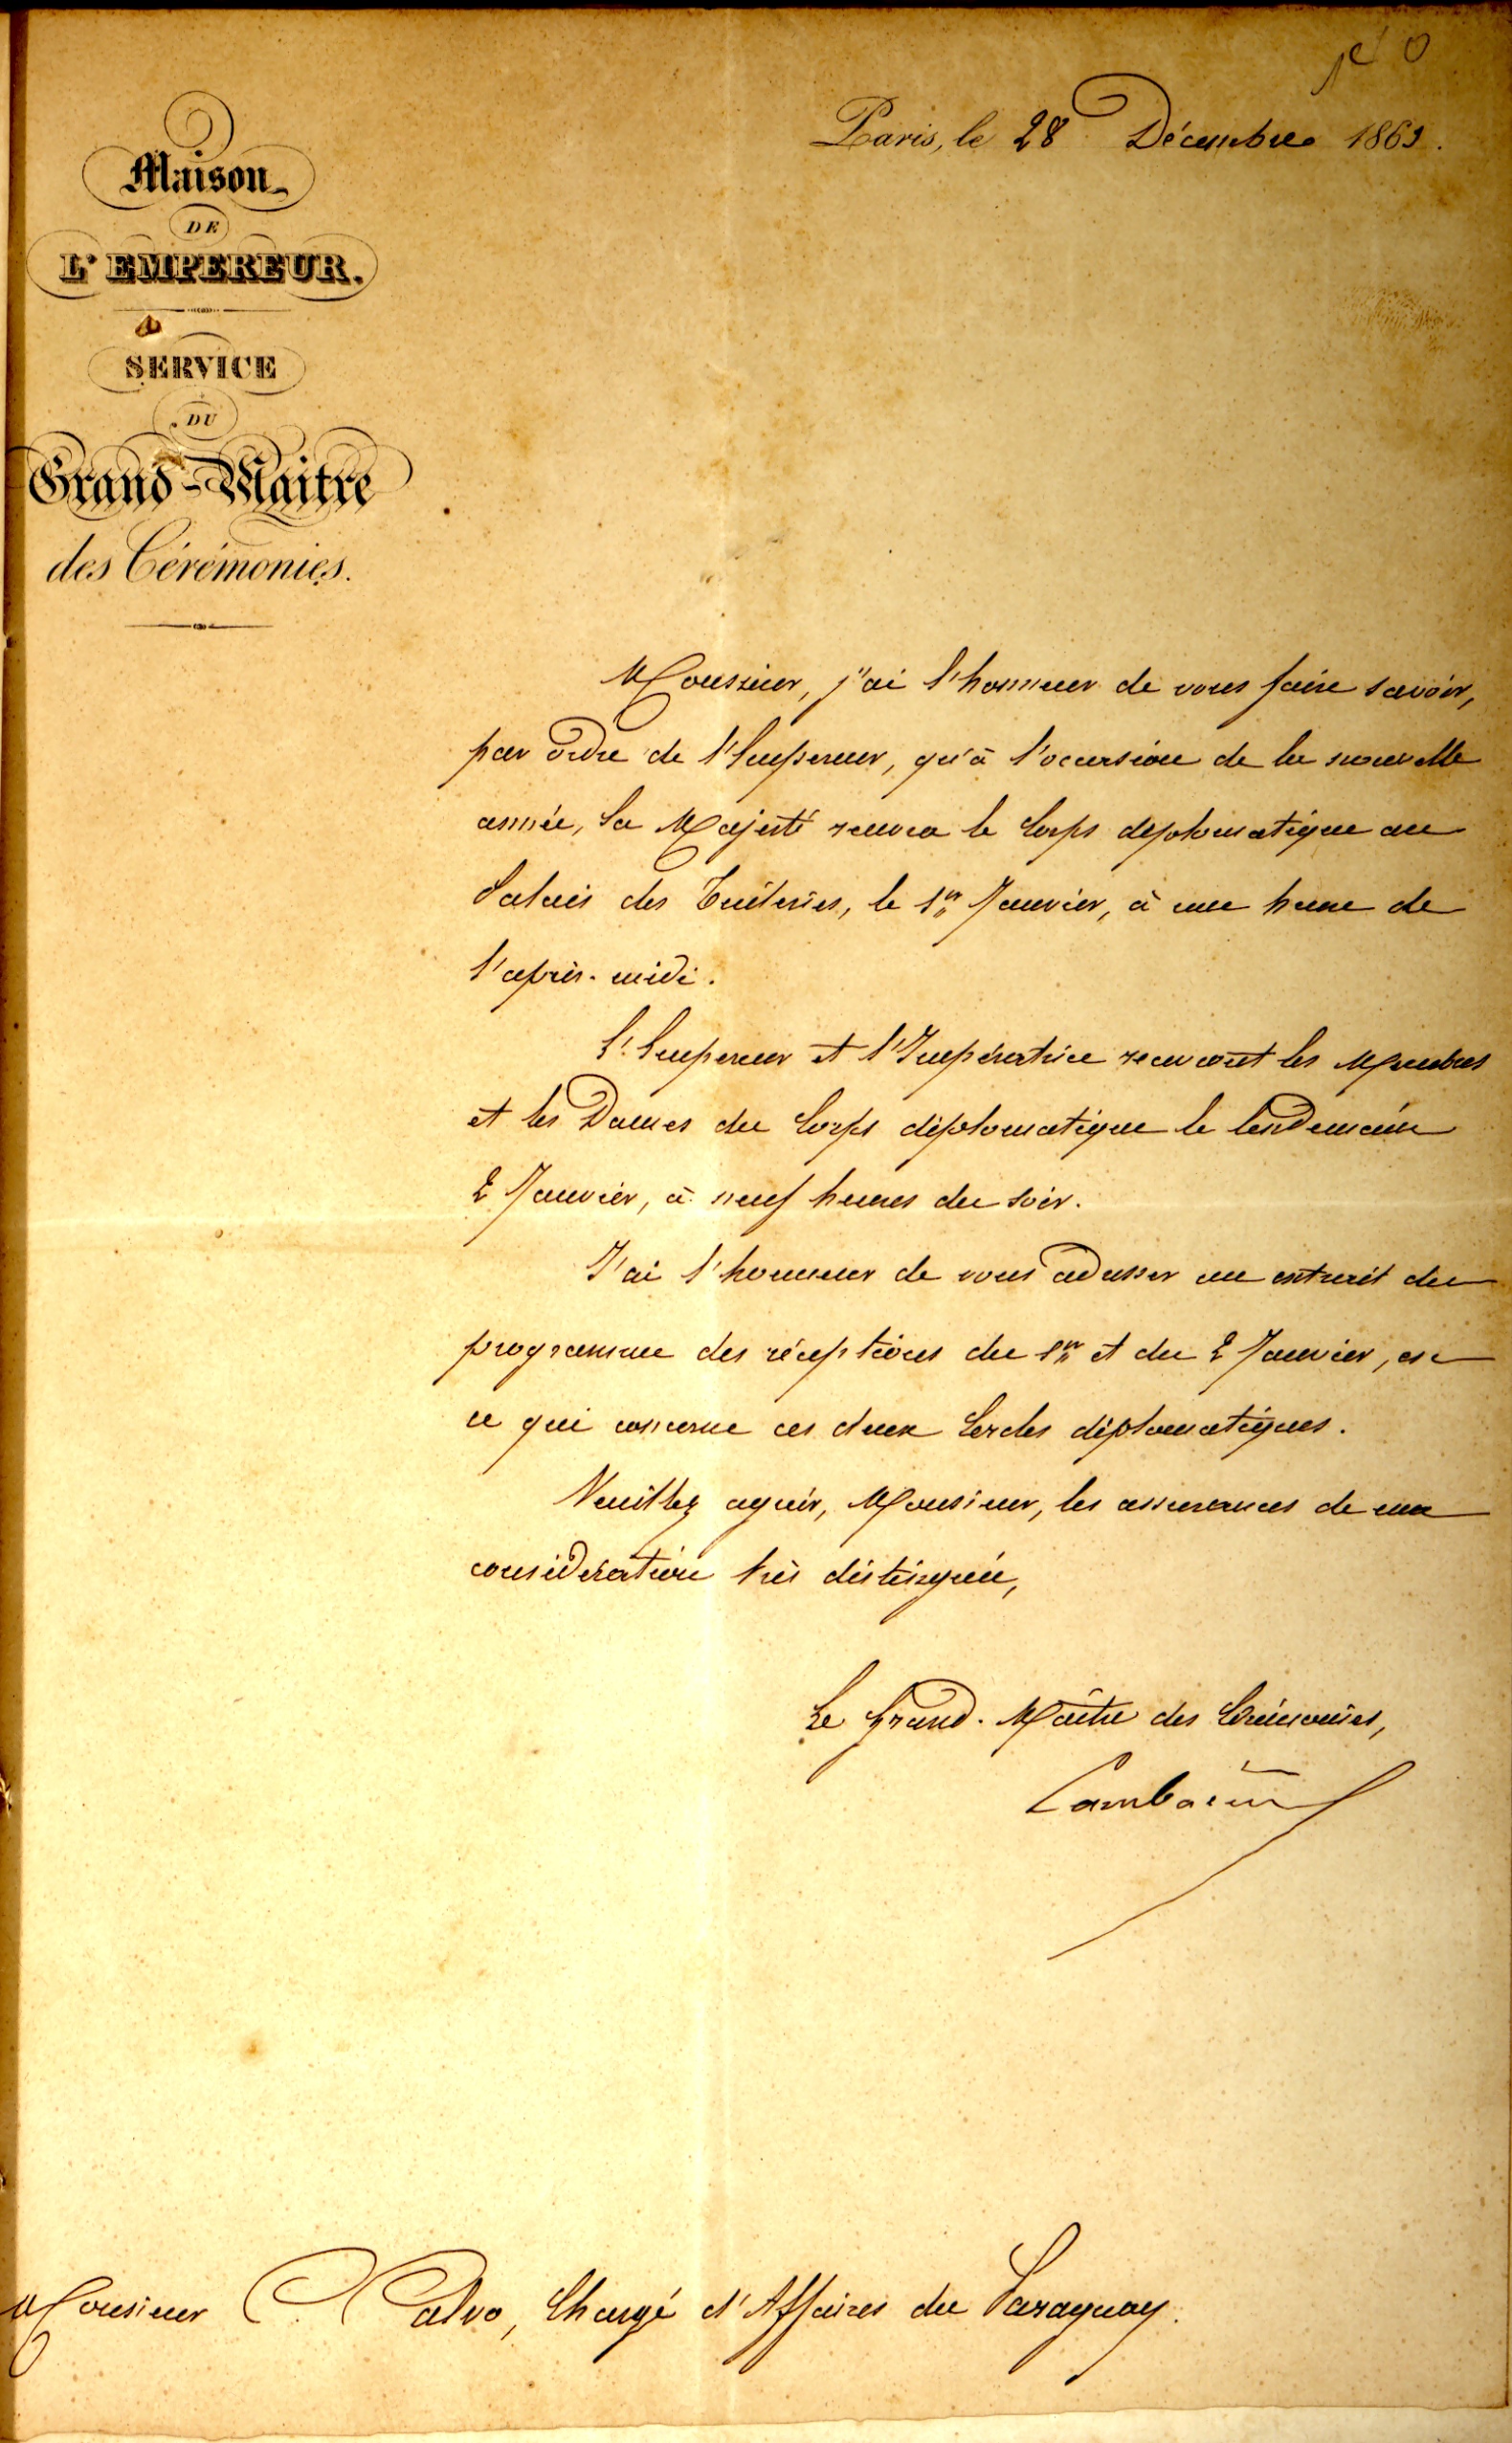 Paris, le 28 Décembre 1863.
Maison
DE
L'EMPEREUR.
SERVICE
DU
Grand-Maitre
des Cérémonies.
Monsieur, j'ai l'honneur de vous faire savoir,
par ordre de l'Empereur, qu'à l'occasion de la nouvelle
année, Sa Majesté recevra le Corps diplomatique au
Palais des Tuileries, le 1er Janvier, à une heure de
l'après-midi.
L'Empereur et l'Impératrice recevront les Membres
et les Dames du Corps diplomatique le lendemain
2 Janvier, à neuf heures du soir.
J'ai l'honneur de vous adresser un extrait du
programme des réceptions du 1er et du 2 Janvier, en
ce qui concerne ces deux Cercles diplomatiques.
Veuillez agréer, Monsieur, les assurances de ma
considération très distinguée,
Le Grand-Maître des Cérémonies,
Cambacérès
Monsieur C. Calvo, Chargé d'Affaires du Paraguay.